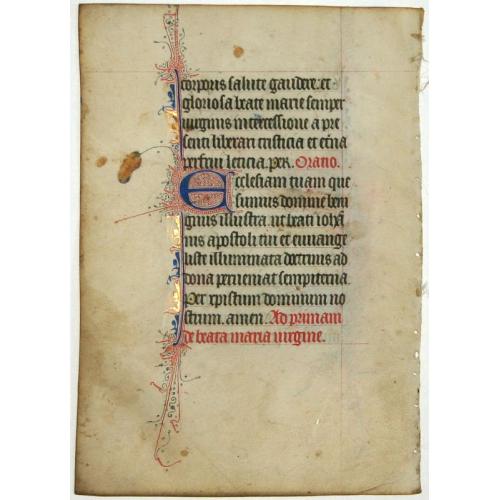 corporis salute gaudere: et
gloriosa beate marie semper
uirginis intercessione a pre
senti liberari tristicia et et̃na
perfrui leticia. Per. Oratio.
Ecclesiam tuam que
sumus domine beni
gnus illustra. ut beati ioh̃an
nis apostoli tui et euuange
liste illuminata doctrinis ad
dona perueniat sempiterna.
Per xpistum dominum no
strum. amen. Ad primam
de beata maria uirgine.